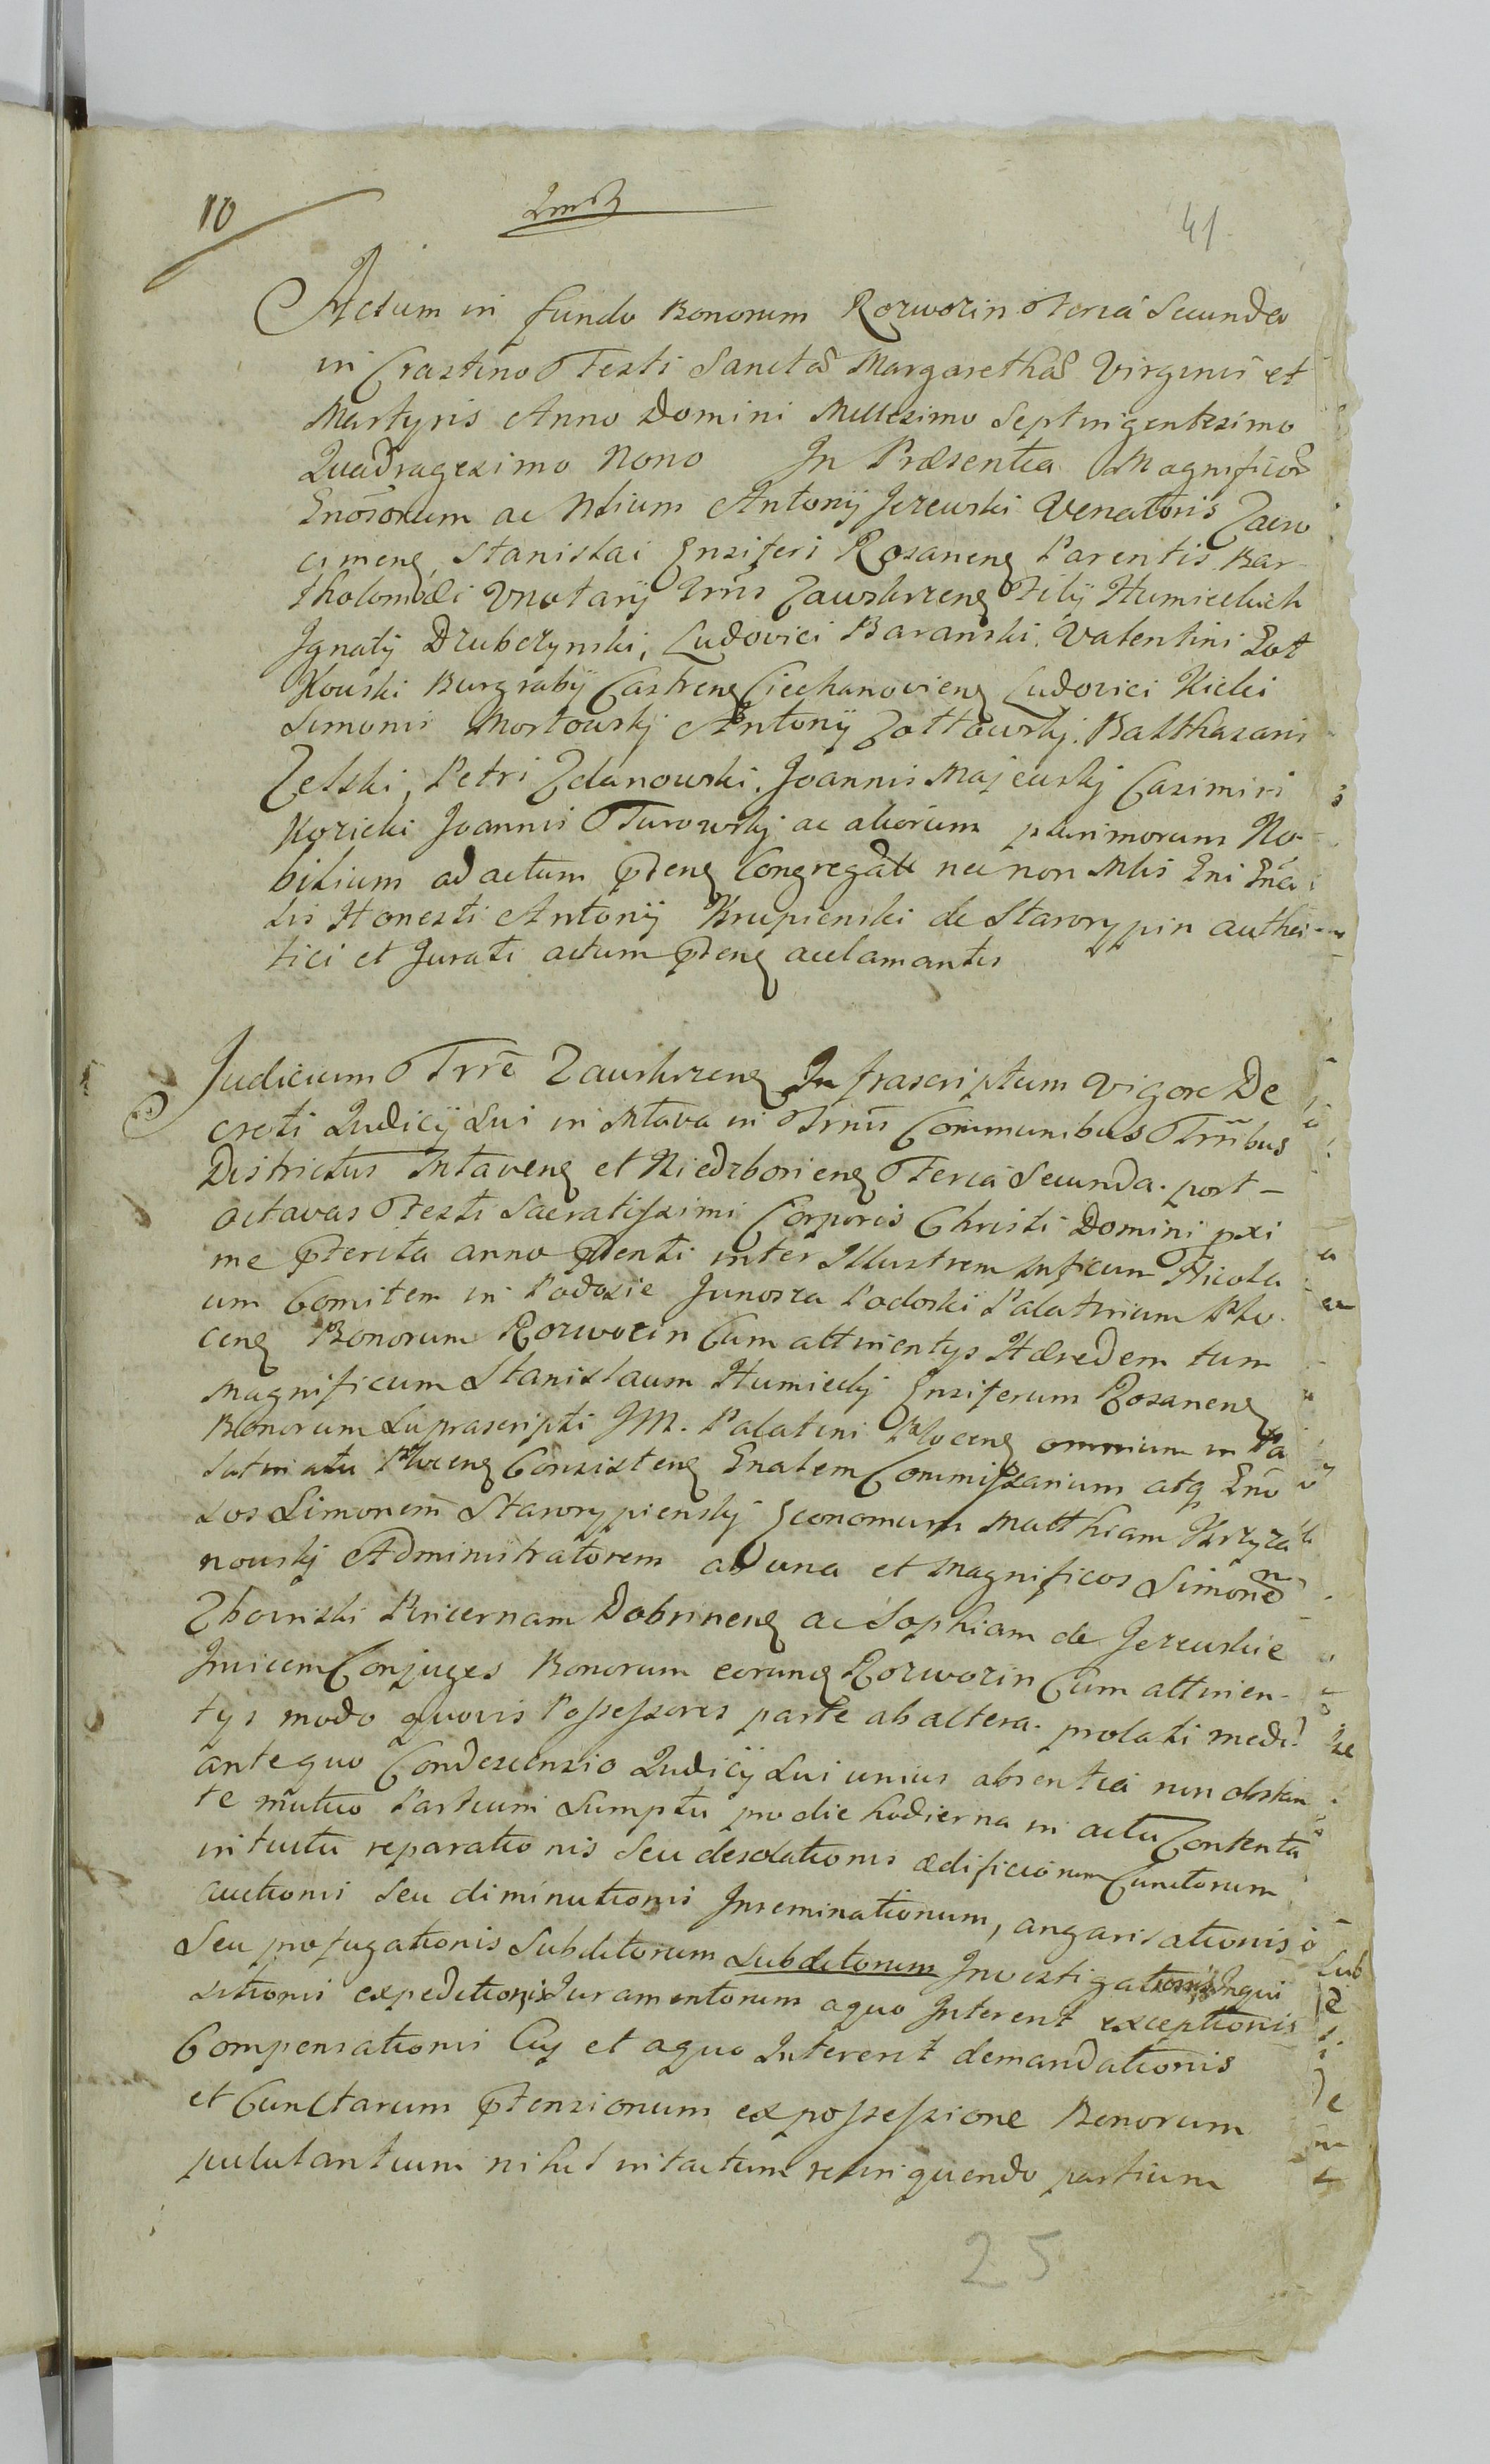 10
41
Actum in fundo Bonorum Rozwozin Feria Secunda
in Crastino Festi Sanctæ Margarethæ Virginis et
Martyris Anno Domini Millesimo Septingentesimo
Quadragesimo Nono In Præsentia Magnificor
Gnosorum ac Nlium Antonij Jezewski Venatoris Zawo
crinenę, Stanislai Ensiferi Rozanenę Parentis Bar-
tholomæi Vnotarij Trris Zawskrzenę Filij Humieckich
Ignatij Dzubczynski, Ludovici Baranski, Valentini Zot
Kowski Burgrabij Castrenę Ciechanovienę Ludovici Kicki
Simonis Mostowskj Antonij Zottowskj, Balthasaris
Zelski, Petri Zdanowski, Joannis Majewskj Casimiri
Kozicki Joannis Turowskj ac aliorum plurimorum No-
bilium ad actum Pñtenę Congregat nec non Mlis Gni Gña
lis Honesti Antonij Krupienski de Starorypin authen
tici et Jurati actum Pñtenę acclamantis
Judicium Trrẽ Zawskrzenę Infrascriptum vigore De
creti Judicij Sui in Mlava in Trmis Communibus Trribus
Districtus Mlavenę et Niedzborienę Feria Secunda post
octavas Festi Sacratissimi Corporis Christi Domini pxi
me Pterita anno Pñtenti inter Illustrem Mficum Nicola
um Comitem in Podosie Junosza Podoski Palatinum Plo
cenę Bonorum Rozwozin Cum attinentys Hæredem tum
Magnificum Stanislaum Humieckj Ensiferum Rozanenę
Bonorum Suprascripti JM. Palatini Plocenę omnium in Pa
latinatu Plocenę Consistenę Gnalem Commissarium atq Gño
sos Simonem Starorypienskj Economum Matthiam Krzyza
nowskj Administratorem ab una et Magnificos Simonem
Zboinski Pincernam Dobrinenę ac Sophiam de Jezewskie
Invicem Conjuges Bonorum eorunę Rozwozin Cum attinen-
tys modo quovis Possessores parte ab altera prolati medi
ante quo Condescensio Judicij Sui unius absentia non obstan
te mutuo Partium Sumptu pro die hodierna in actu Contenta
intuitu reparationis Seu desolationis ædificiorum Cunctorum
auctionis Seu diminutionis Inseminationum, angarisationis
Seu profugationis Subditorum Subditorum Investigationis Inqui
sitionis expeditionis Juramentorum aquo Interent exceptionis
Compensationis Cuj et aquo Intererit demandationis
et Cunctarum Ptensionum ex possessione Bonorum
pululantium nihil intactum relinquendo partium
25